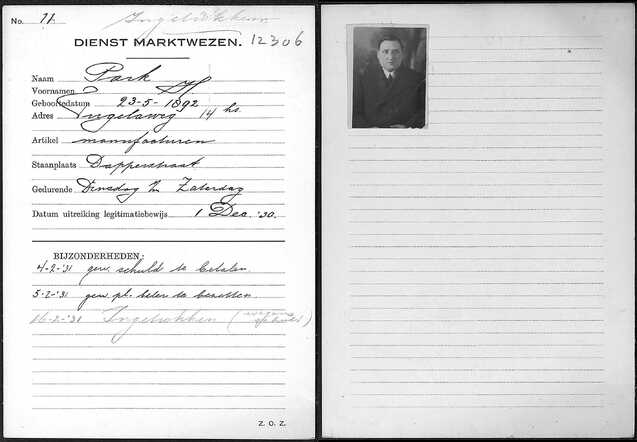 No. 11. Ingetrokken
DIENST MARKTWEZEN. 12306
Naam Park
Voornamen H.
Geboortedatum 23-5-1892
Adres 14 hs.
Artikel manufacturen
Staanplaats Dapperstraat
Gedurende Dinsdag Zaterdag
Datum uitreiking legitimatiebewijs 1 Dec. '30.
BIJZONDERHEDEN:
4-2-'31 gew. schuld te betalen
5-2-'31 gew. pl. beter te bezetten
16-2-'31 Ingetrokken (wegens )
Z. O. Z.